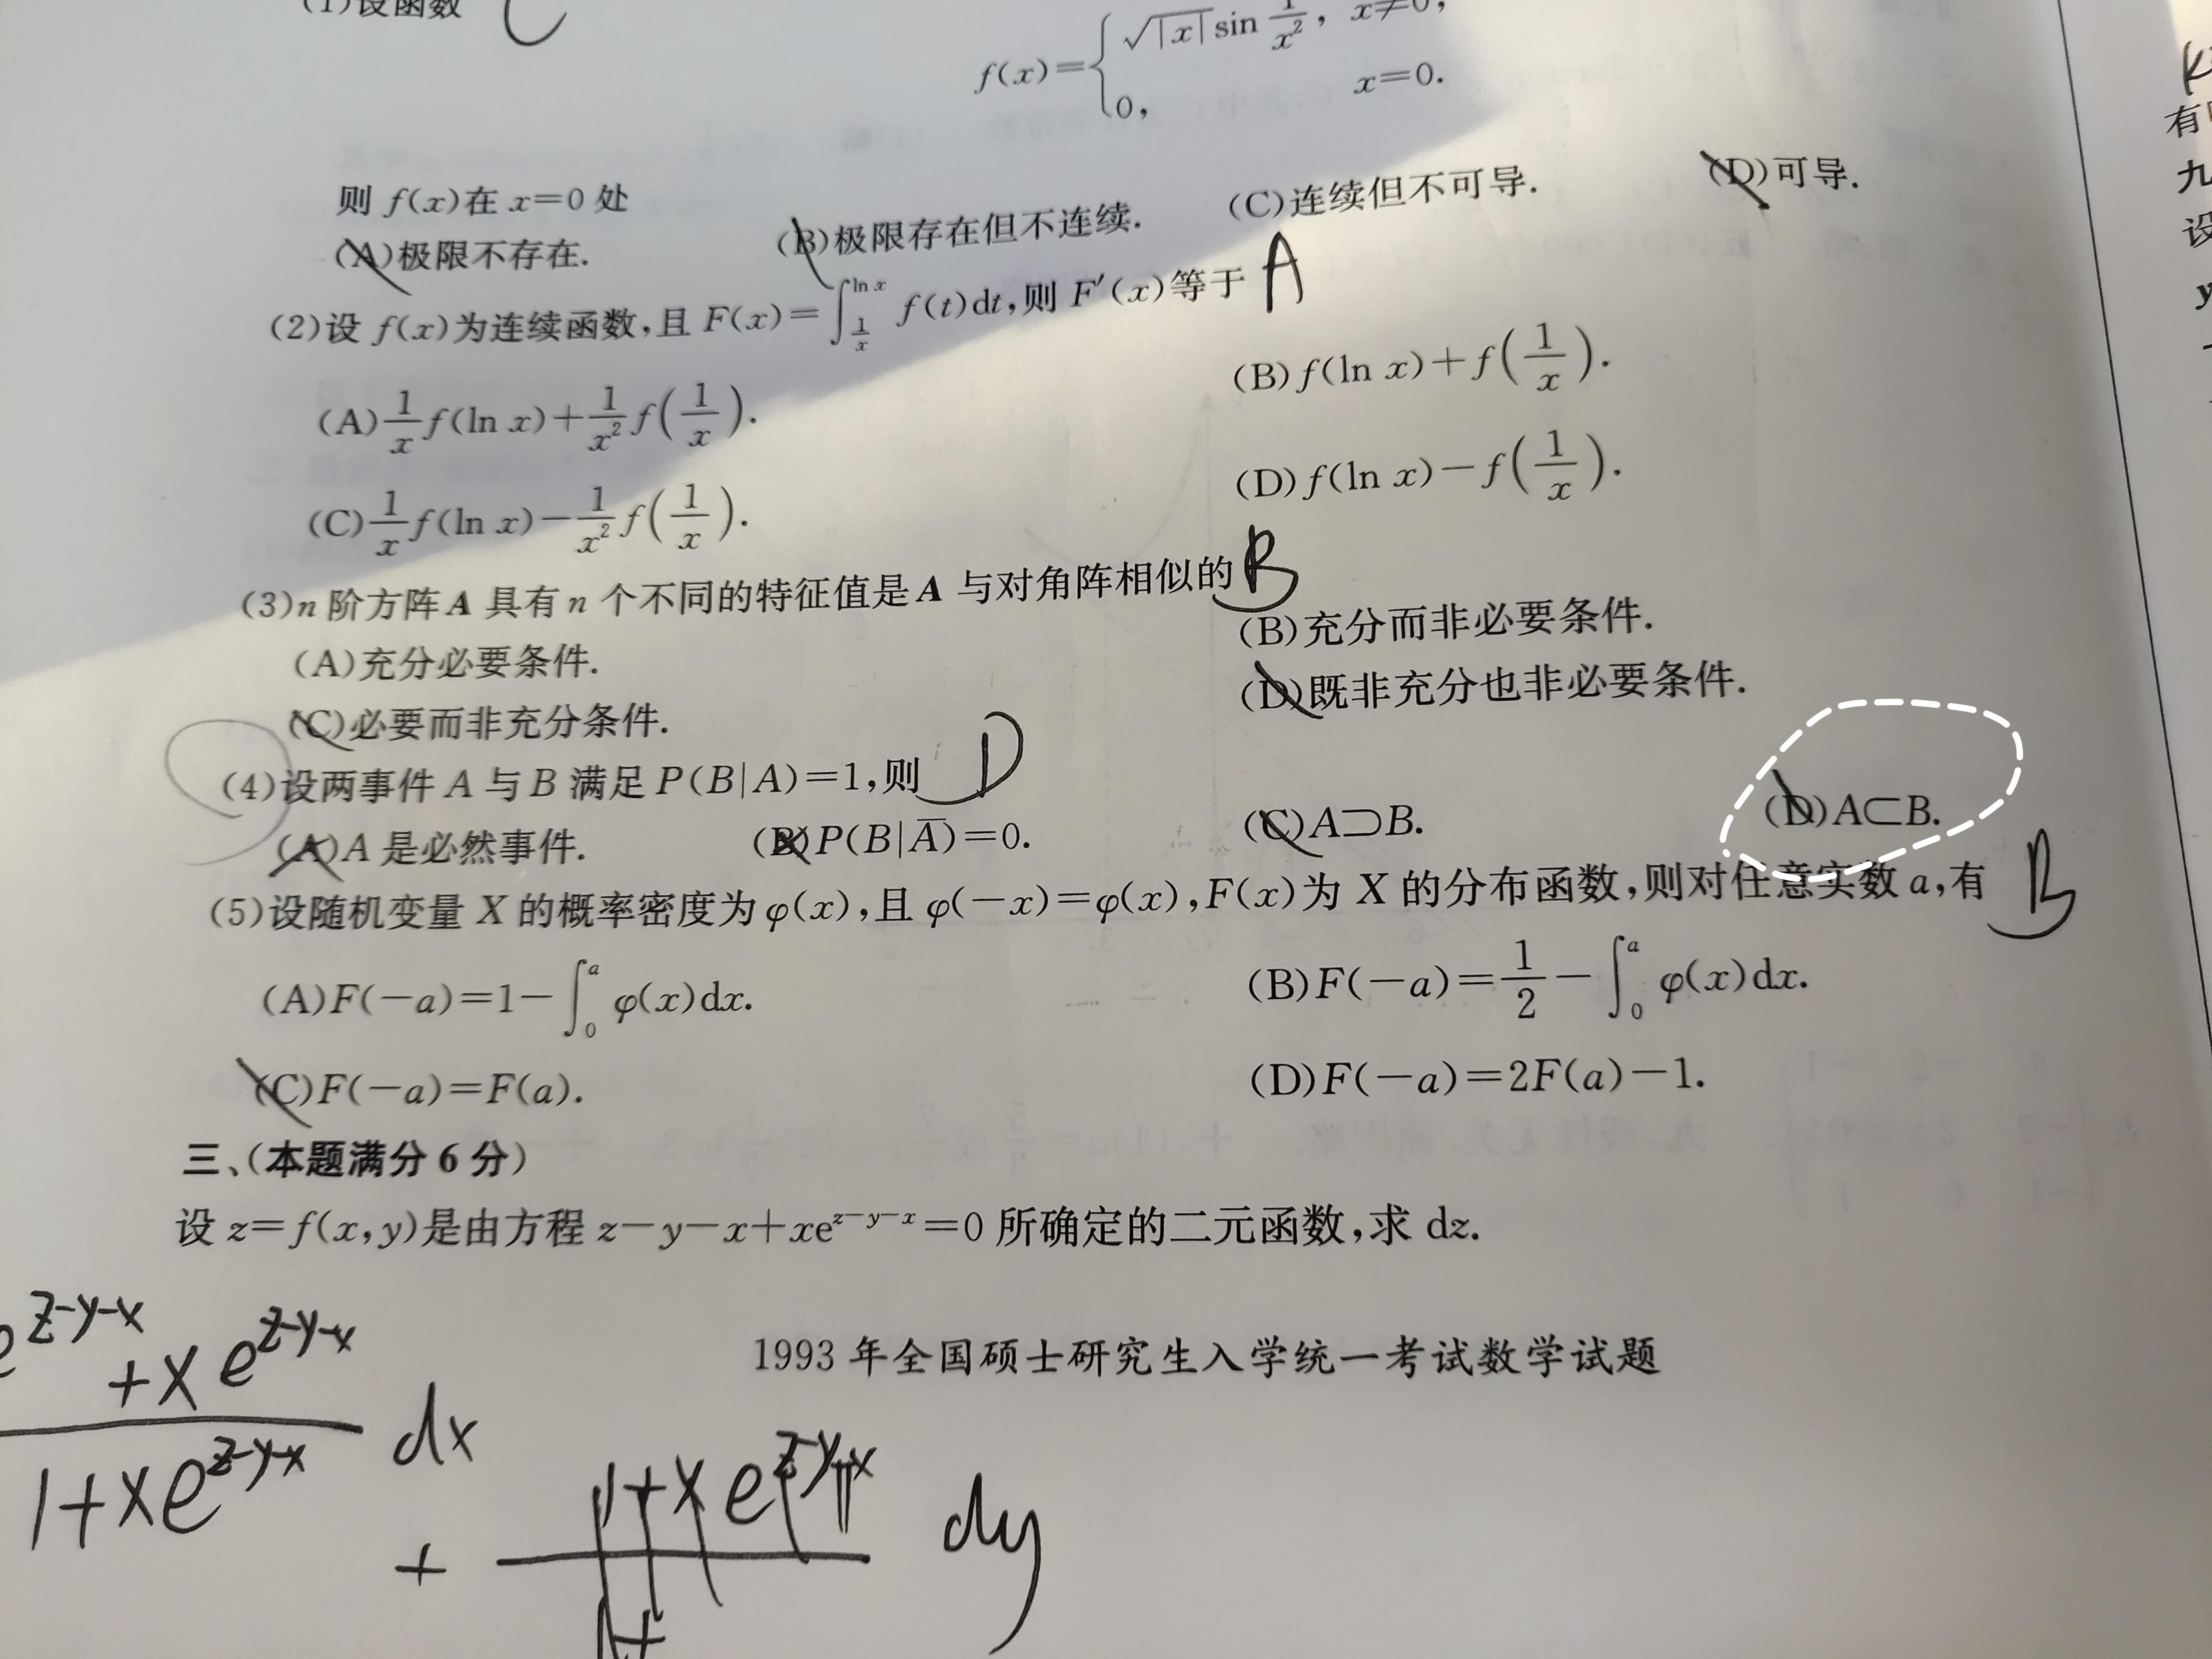 (1)设函数 C
f(x)={√|x| sin 1/x², x≠0,
0, x=0.
则 f(x)在 x=0 处
(A)极限不存在. (B)极限存在但不连续. (C)连续但不可导. (D)可导.
(2)设 f(x)为连续函数,且 F(x)=∫_{1/x}^{ln x} f(t)dt,则 F′(x)等于 A
(A) 1/x f(ln x)+1/x² f(1/x). (B) f(ln x)+f(1/x).
(C) 1/x f(ln x)−1/x² f(1/x). (D) f(ln x)−f(1/x).
(3)n 阶方阵 A 具有 n 个不同的特征值是 A 与对角阵相似的 B
(A)充分必要条件. (B)充分而非必要条件.
(C)必要而非充分条件. (D)既非充分也非必要条件.
(4)设两事件 A 与 B 满足 P(B|A)=1,则 D
(A)A 是必然事件. (B)P(B|A̅)=0. (C)A⊃B. (D)A⊂B.
(5)设随机变量 X 的概率密度为 φ(x),且 φ(−x)=φ(x),F(x)为 X 的分布函数,则对任意实数 a,有 B
(A)F(−a)=1−∫₀^a φ(x)dx. (B)F(−a)=1/2−∫₀^a φ(x)dx.
(C)F(−a)=F(a). (D)F(−a)=2F(a)−1.
三、(本题满分 6 分)
设 z=f(x,y)是由方程 z−y−x+xe^{z−y−x}=0 所确定的二元函数,求 dz.
e^{z-y-x}
+xe^{z-y-x}
1+xe^{z-y-x} dx
+ dy
1993 年全国硕士研究生入学统一考试数学试题
有
九
设
y